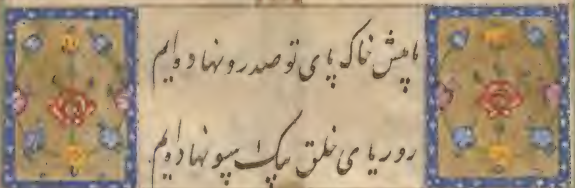 ما پیش خاک پای تو صد رو نهاده‌ایم
رو ریای خلق بیک سو نهاده‌ایم